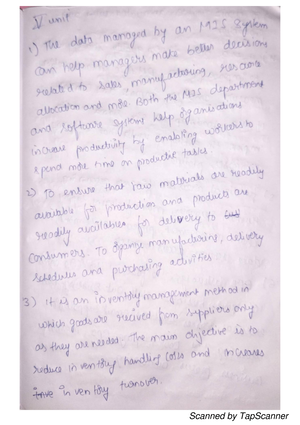 V unit
1) The data managed by an MIS System
can help managers make better decisions
related to sales, manufactureing, resource
allocation and more Both the MIS department
and software system help organisations
increase productivity by enabling workers to
spend more time on productive tasks
2) To ensure that raw materials are readily
available for production and products are
readily available for delivery to
Consumers. To manufacturing, delivery
schedules and purchasing activities.
3) it is an inventory management method in
which goods are recived from suppliers only
as they are needed. The main objective is to
reduce inventory handling costs and increases
inventory turnover.
Scanned by TapScanner